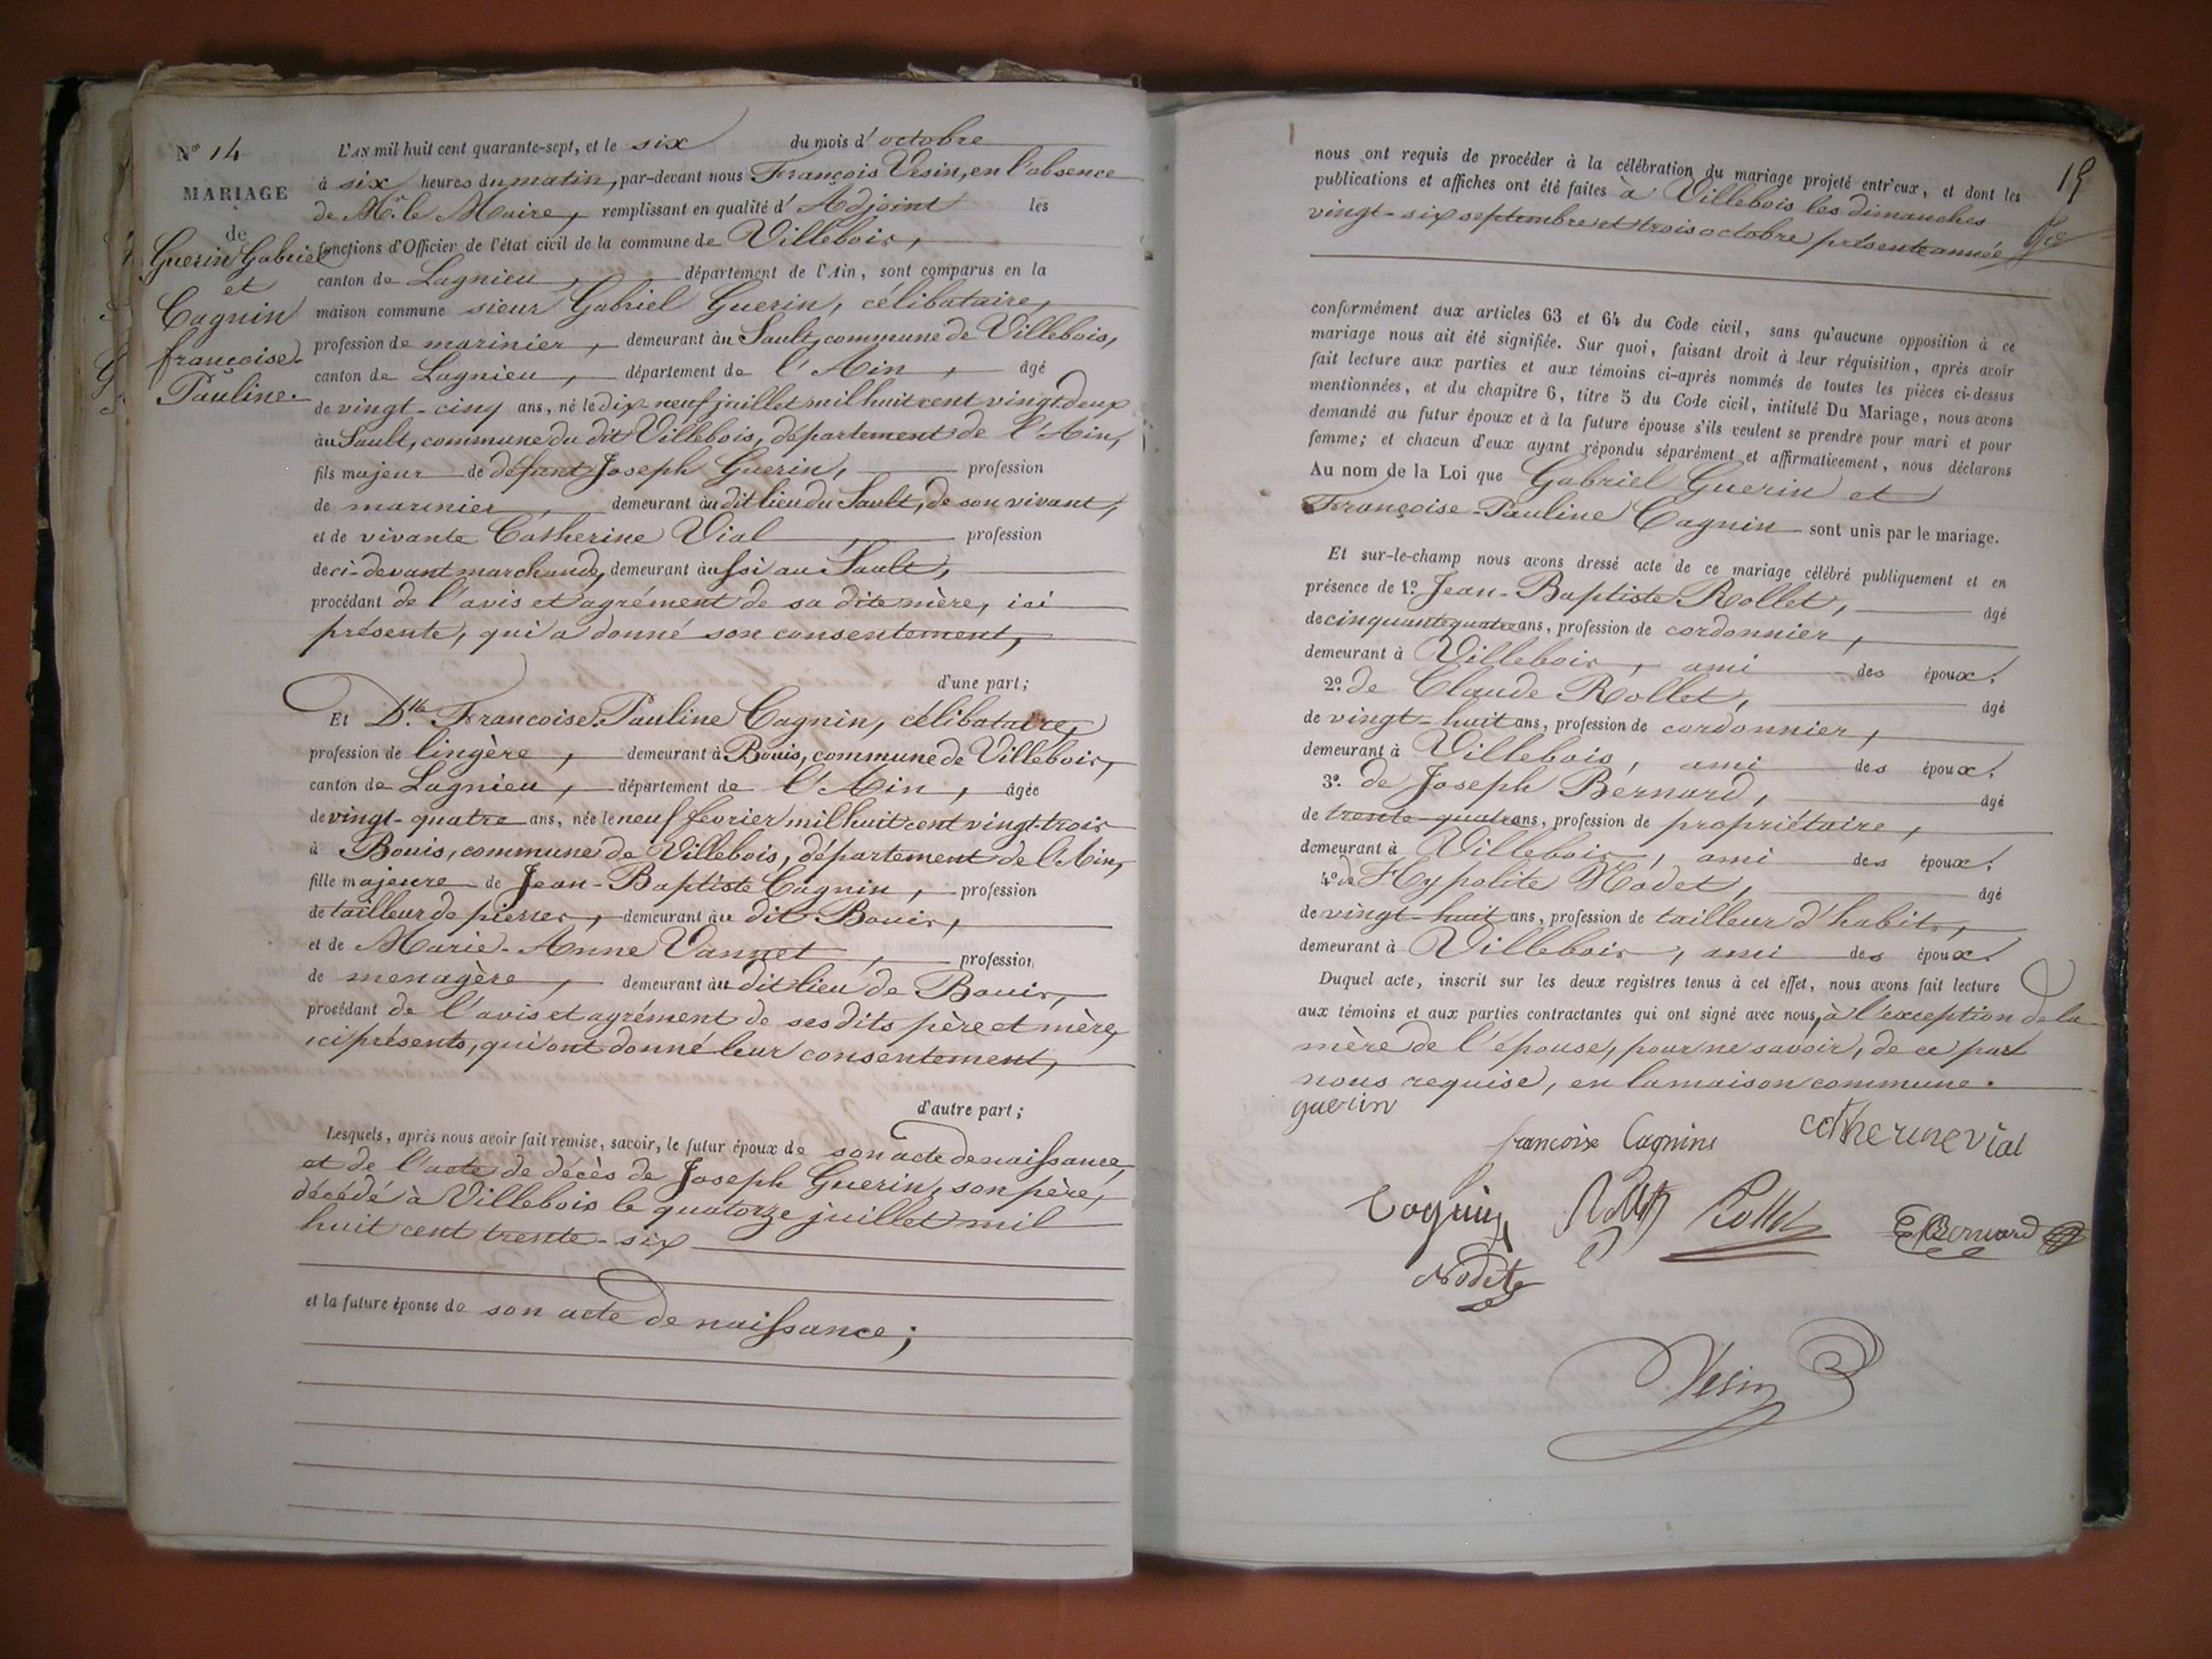 Nº 14
MARIAGE
de
Guerin Gabriel
et
Cagnin
françoise-
Pauline.
L'AN mil huit cent quarante-sept, et le six du mois d'octobre
à six heures du matin, par-devant nous François Vesin, en l'absence
de Mr. le Maire, remplissant en qualité d'Adjoint les
fonctions d'Officier de l'état civil de la commune de Villebois,
canton de Lagnieu, département de l'Ain, sont comparus en la
maison commune sieur Gabriel Guerin, célibataire,
profession de marinier, demeurant au Sault, commune de Villebois,
canton de Lagnieu, département de l'Ain, âgé
de vingt-cinq ans, né le dix neuf juillet mil huit cent vingt deux
au Sault, commune du dit Villebois, département de l'Ain,
fils majeur de défunt Joseph Guerin, profession
de marinier, demeurant au dit lieu du Sault, de son vivant,
et de vivante Catherine Vial, profession
de ci-devant marchande, demeurant aussi au Sault,
procédant de l'avis et agrément de sa dite mère, ici
présente, qui a donné son consentement,
d'une part;
Et Dlle Francoise-Pauline Cagnin, célibataire,
profession de lingère, demeurant à Bouis, commune de Villebois,
canton de Lagnieu, département de l'Ain, âgée
de vingt-quatre ans, née le neuf fevrier mil huit cent vingt-trois
à Bouis, commune de Villebois, département de l'Ain,
fille majeure de Jean-Baptiste Cagnin, profession
de tailleur de pierres, demeurant au dit Bouis,
et de Marie-Anne Vannet, profession
de menagère, demeurant au dit lieu de Bouis,
procédant de l'avis et agrément de ses dits père et mère,
ici présents, qui ont donné leur consentement,
d'autre part;
Lesquels, après nous avoir fait remise, savoir, le futur époux de son acte de naissance,
et de l'acte de décès de Joseph Guerin, son père,
décédé à Villebois le quatorze juillet mil
huit cent trente-six
et la future épouse de son acte de naissance;
19
nous ont requis de procéder à la célébration du mariage projeté entr'eux, et dont les
publications et affiches ont été faites à Villebois les dimanches
vingt-six septembre et trois octobre présente année
conformément aux articles 63 et 64 du Code civil, sans qu'aucune opposition à ce
mariage nous ait été signifiée. Sur quoi, faisant droit à leur réquisition, après avoir
fait lecture aux parties et aux témoins ci-après nommés de toutes les pièces ci-dessus
mentionnées, et du chapitre 6, titre 5 du Code civil, intitulé Du Mariage, nous avons
demandé au futur époux et à la future épouse s'ils veulent se prendre pour mari et pour
femme; et chacun d'eux ayant répondu séparément et affirmativement, nous déclarons
Au nom de la Loi que Gabriel Guerin et
Françoise-Pauline Cagnin sont unis par le mariage.
Et sur-le-champ nous avons dressé acte de ce mariage célébré publiquement et en
présence de 1º. Jean-Baptiste Rollet, âgé
de cinquante quatre ans, profession de cordonnier,
demeurant à Villebois, ami des époux,
2º. de Claude Rollet, âgé
de vingt-huit ans, profession de cordonnier,
demeurant à Villebois, ami des époux,
3º. de Joseph Bernard, âgé
de trente-quatre ans, profession de propriétaire,
demeurant à Villebois, ami des époux,
4º de Hypolite Nodet, âgé
de vingt-huit ans, profession de tailleur d'habits,
demeurant à Villebois, ami des époux.
Duquel acte, inscrit sur les deux registres tenus à cet effet, nous avons fait lecture
aux témoins et aux parties contractantes qui ont signé avec nous, à l'exception de la
mère de l'épouse, pour ne savoir, de ce par
nous requise, en la maison commune.
guerin
francoise Cagnin catherine vial
Cagnin Rollet Rollet Bernard
Nodet
Vesin